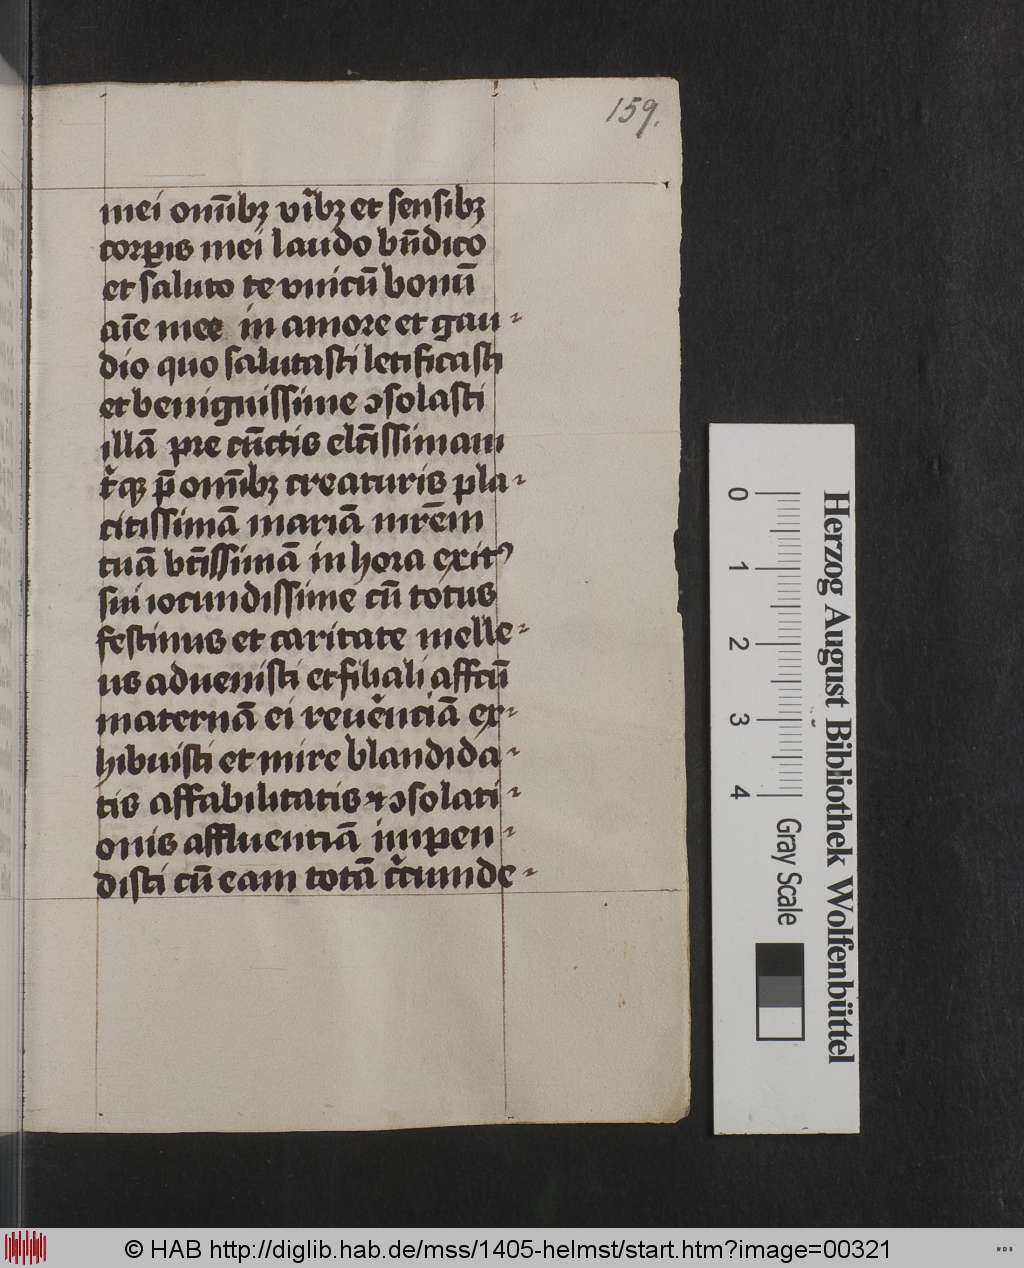 159.
mei om̄ibꝫ vͥibꝫ et sensibꝫ
corꝑis mei laudo bn̄dico
et saluto te vnicū bonū
aīe mee in amore et gau-
dio quo salutasti letificasti
et benignissime ꝯsolasti
illā pre cūctis elc̄issimam
t̾qꝫ p̄ om̄ibꝫ creaturis pla-
citissimā mariā mr̄em
tuā bt̄issimā in hora exitꝰ
sui iocundissime cū totus
festinus et caritate melle-
us aduenisti et filiali affctū
maternā ei reue̾nciā ex-
hibuisti et mire blandida-
tis affabilitatis ⁊ ꝯsolati-
onis affluentiā impen-
disti cū eam totā c̾cumde-
Herzog August Bibliothek Wolfenbüttel
0 1 2 3 4
Gray Scale
© HAB http://diglib.hab.de/mss/1405-helmst/start.htm?image=00321